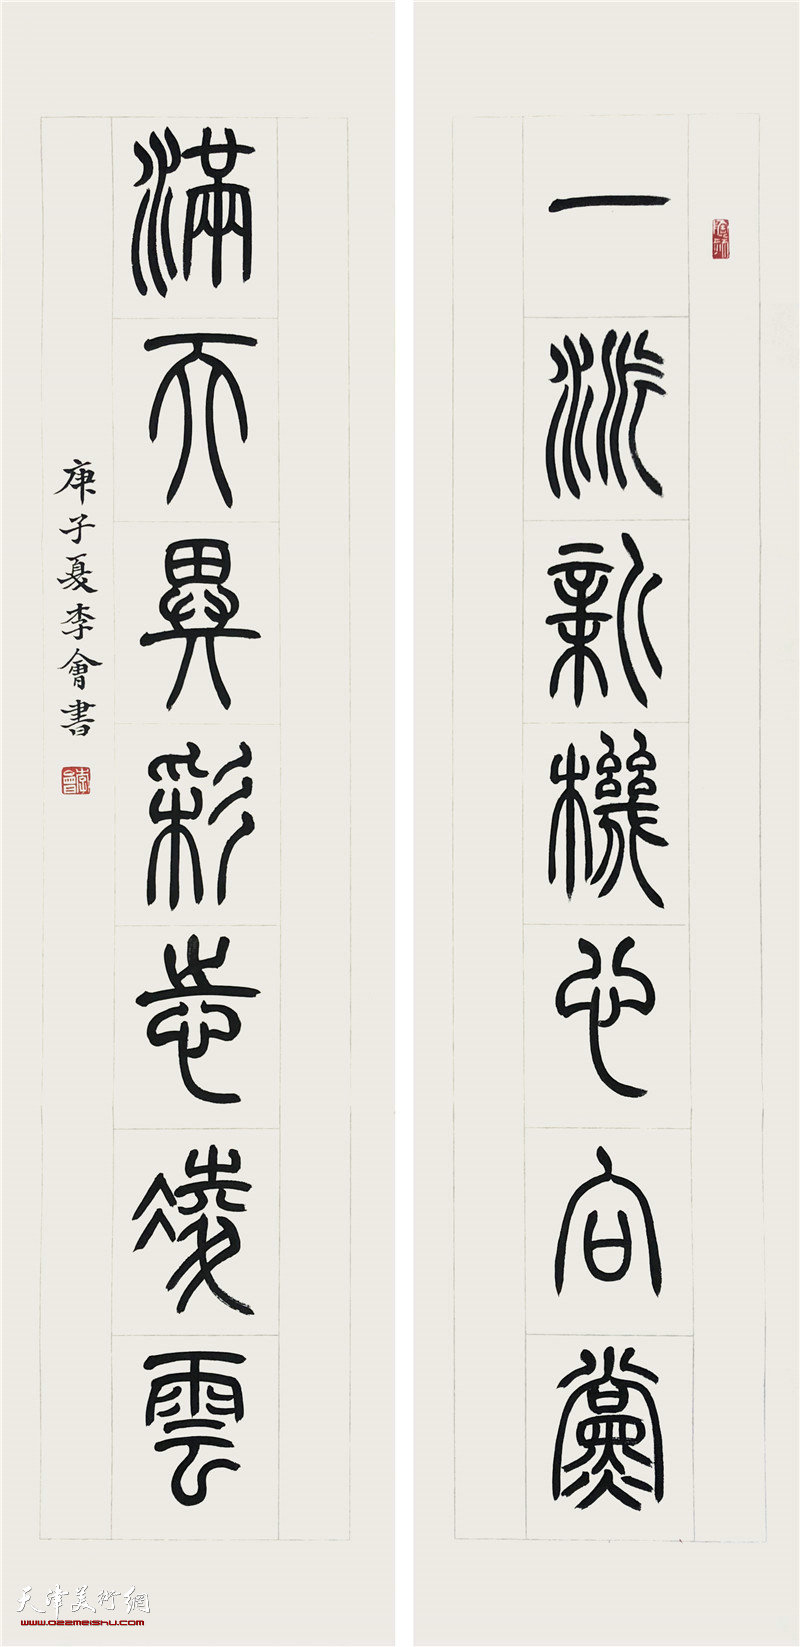 一派新機心向黨
滿天異彩志凌雲
庚子夏李會書
李會
天津美術網
www.022meishu.com